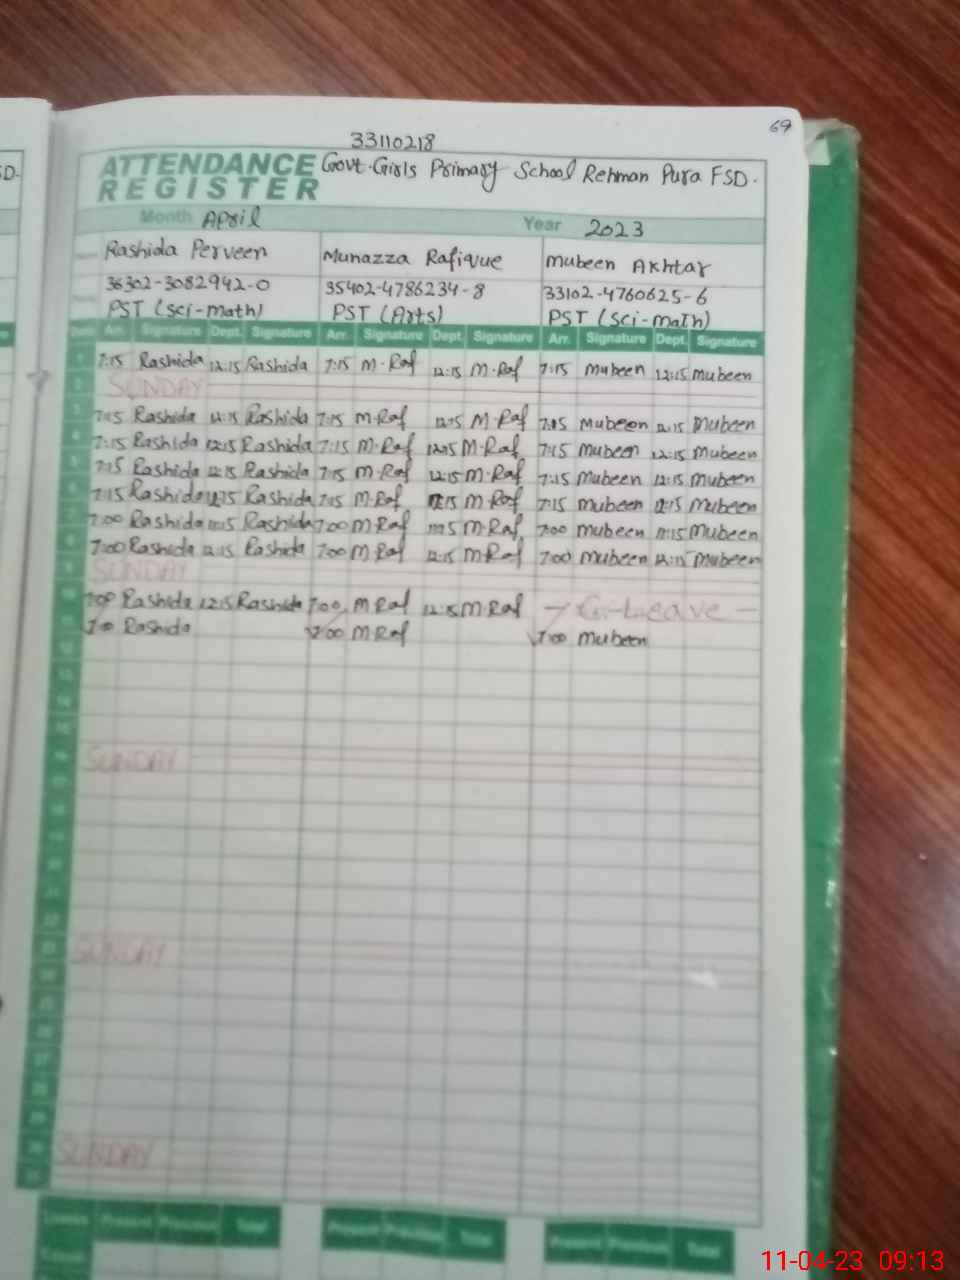 69
33110218
SD.
ATTENDANCE REGISTER Govt. Girls Primary School Rehman Pura FSD.
Month April Year 2023
Rashida Perveen Munazza Rafique Mubeen Akhtar
36302-3082942-0 35402-4786234-8 33102-4760625-6
PST (sci-math) PST (Arts) PST (sci-math)
Arr. Signature Dept. Signature Arr. Signature Dept. Signature Arr. Signature Dept. Signature
1 7:15 Rashida 12:15 Rashida 7:15 M-Raf 12:15 M-Raf 7:15 mubeen 12:15 mubeen
2 SUNDAY
3 7:15 Rashida 12:15 Rashida 7:15 M-Raf 12:15 M-Raf 7:15 Mubeen 12:15 Mubeen
4 7:15 Rashida 12:15 Rashida 7:15 M-Raf 12:15 M-Raf 7:15 mubeen 12:15 Mubeen
5 7:15 Rashida 12:15 Rashida 7:15 M-Raf 12:15 M-Raf 7:15 Mubeen 12:15 Mubeen
6 7:15 Rashida 12:15 Rashida 7:15 M-Raf 12:15 M-Raf 7:15 mubeen 12:15 Mubeen
7 7:00 Rashida Rashida 7:00 M-Raf M-Raf 7:00 mubeen Mubeen
8 7:00 Rashida 12:15 Rashida 7:00 M-Raf 12:15 M-Raf 7:00 mubeen 12:15 Mubeen
9 SUNDAY
10 7:00 Rashida 12:15 Rashida 7:00 M-Raf 12:15 M-Raf Leave
11 7:00 Rashida 7:00 M-Raf 7:00 mubeen
12
13
14
15
16 SUNDAY
17
18
19
20
21
22
23 SUNDAY
24
25
26
27
28
29
30 SUNDAY
31
Leaves Present Previous Total Present Previous Total Present Previous Total
11-04-23 09:13